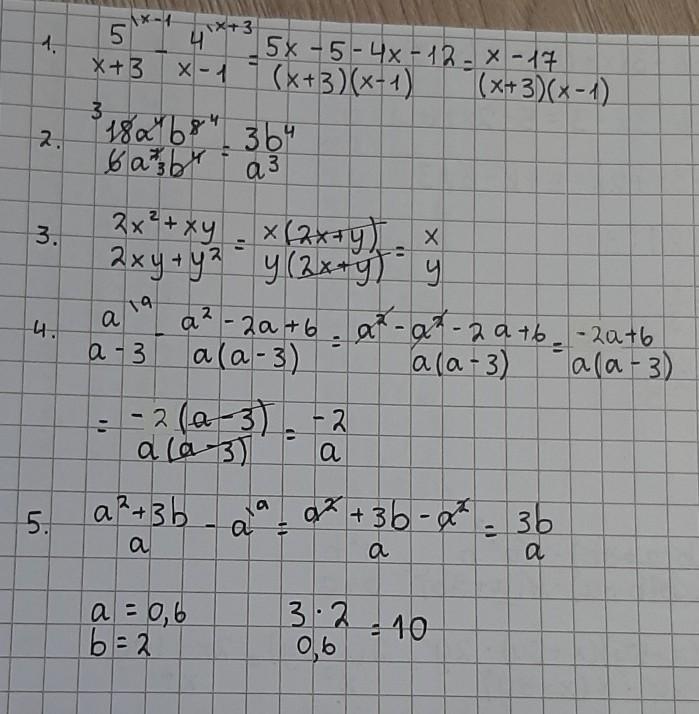 1. 5\x-1/x+3 - 4\x+3/x-1 = 5x-5-4x-12/(x+3)(x-1) = x-17/(x+3)(x-1)
2. ³18a⁴b⁸ ⁴/6a⁷ ³b⁴ = 3b⁴/a³
3. 2x²+xy/2xy+y² = x(2x+y)/y(2x+y) = x/y
4. a\a/a-3 - a²-2a+6/a(a-3) = a²-a²-2a+6/a(a-3) = -2a+6/a(a-3)
= -2(a-3)/a(a-3) = -2/a
5. a²+3b/a - a\a = a²+3b-a²/a = 3b/a
a = 0,6 3·2/0,6 = 10
b = 2